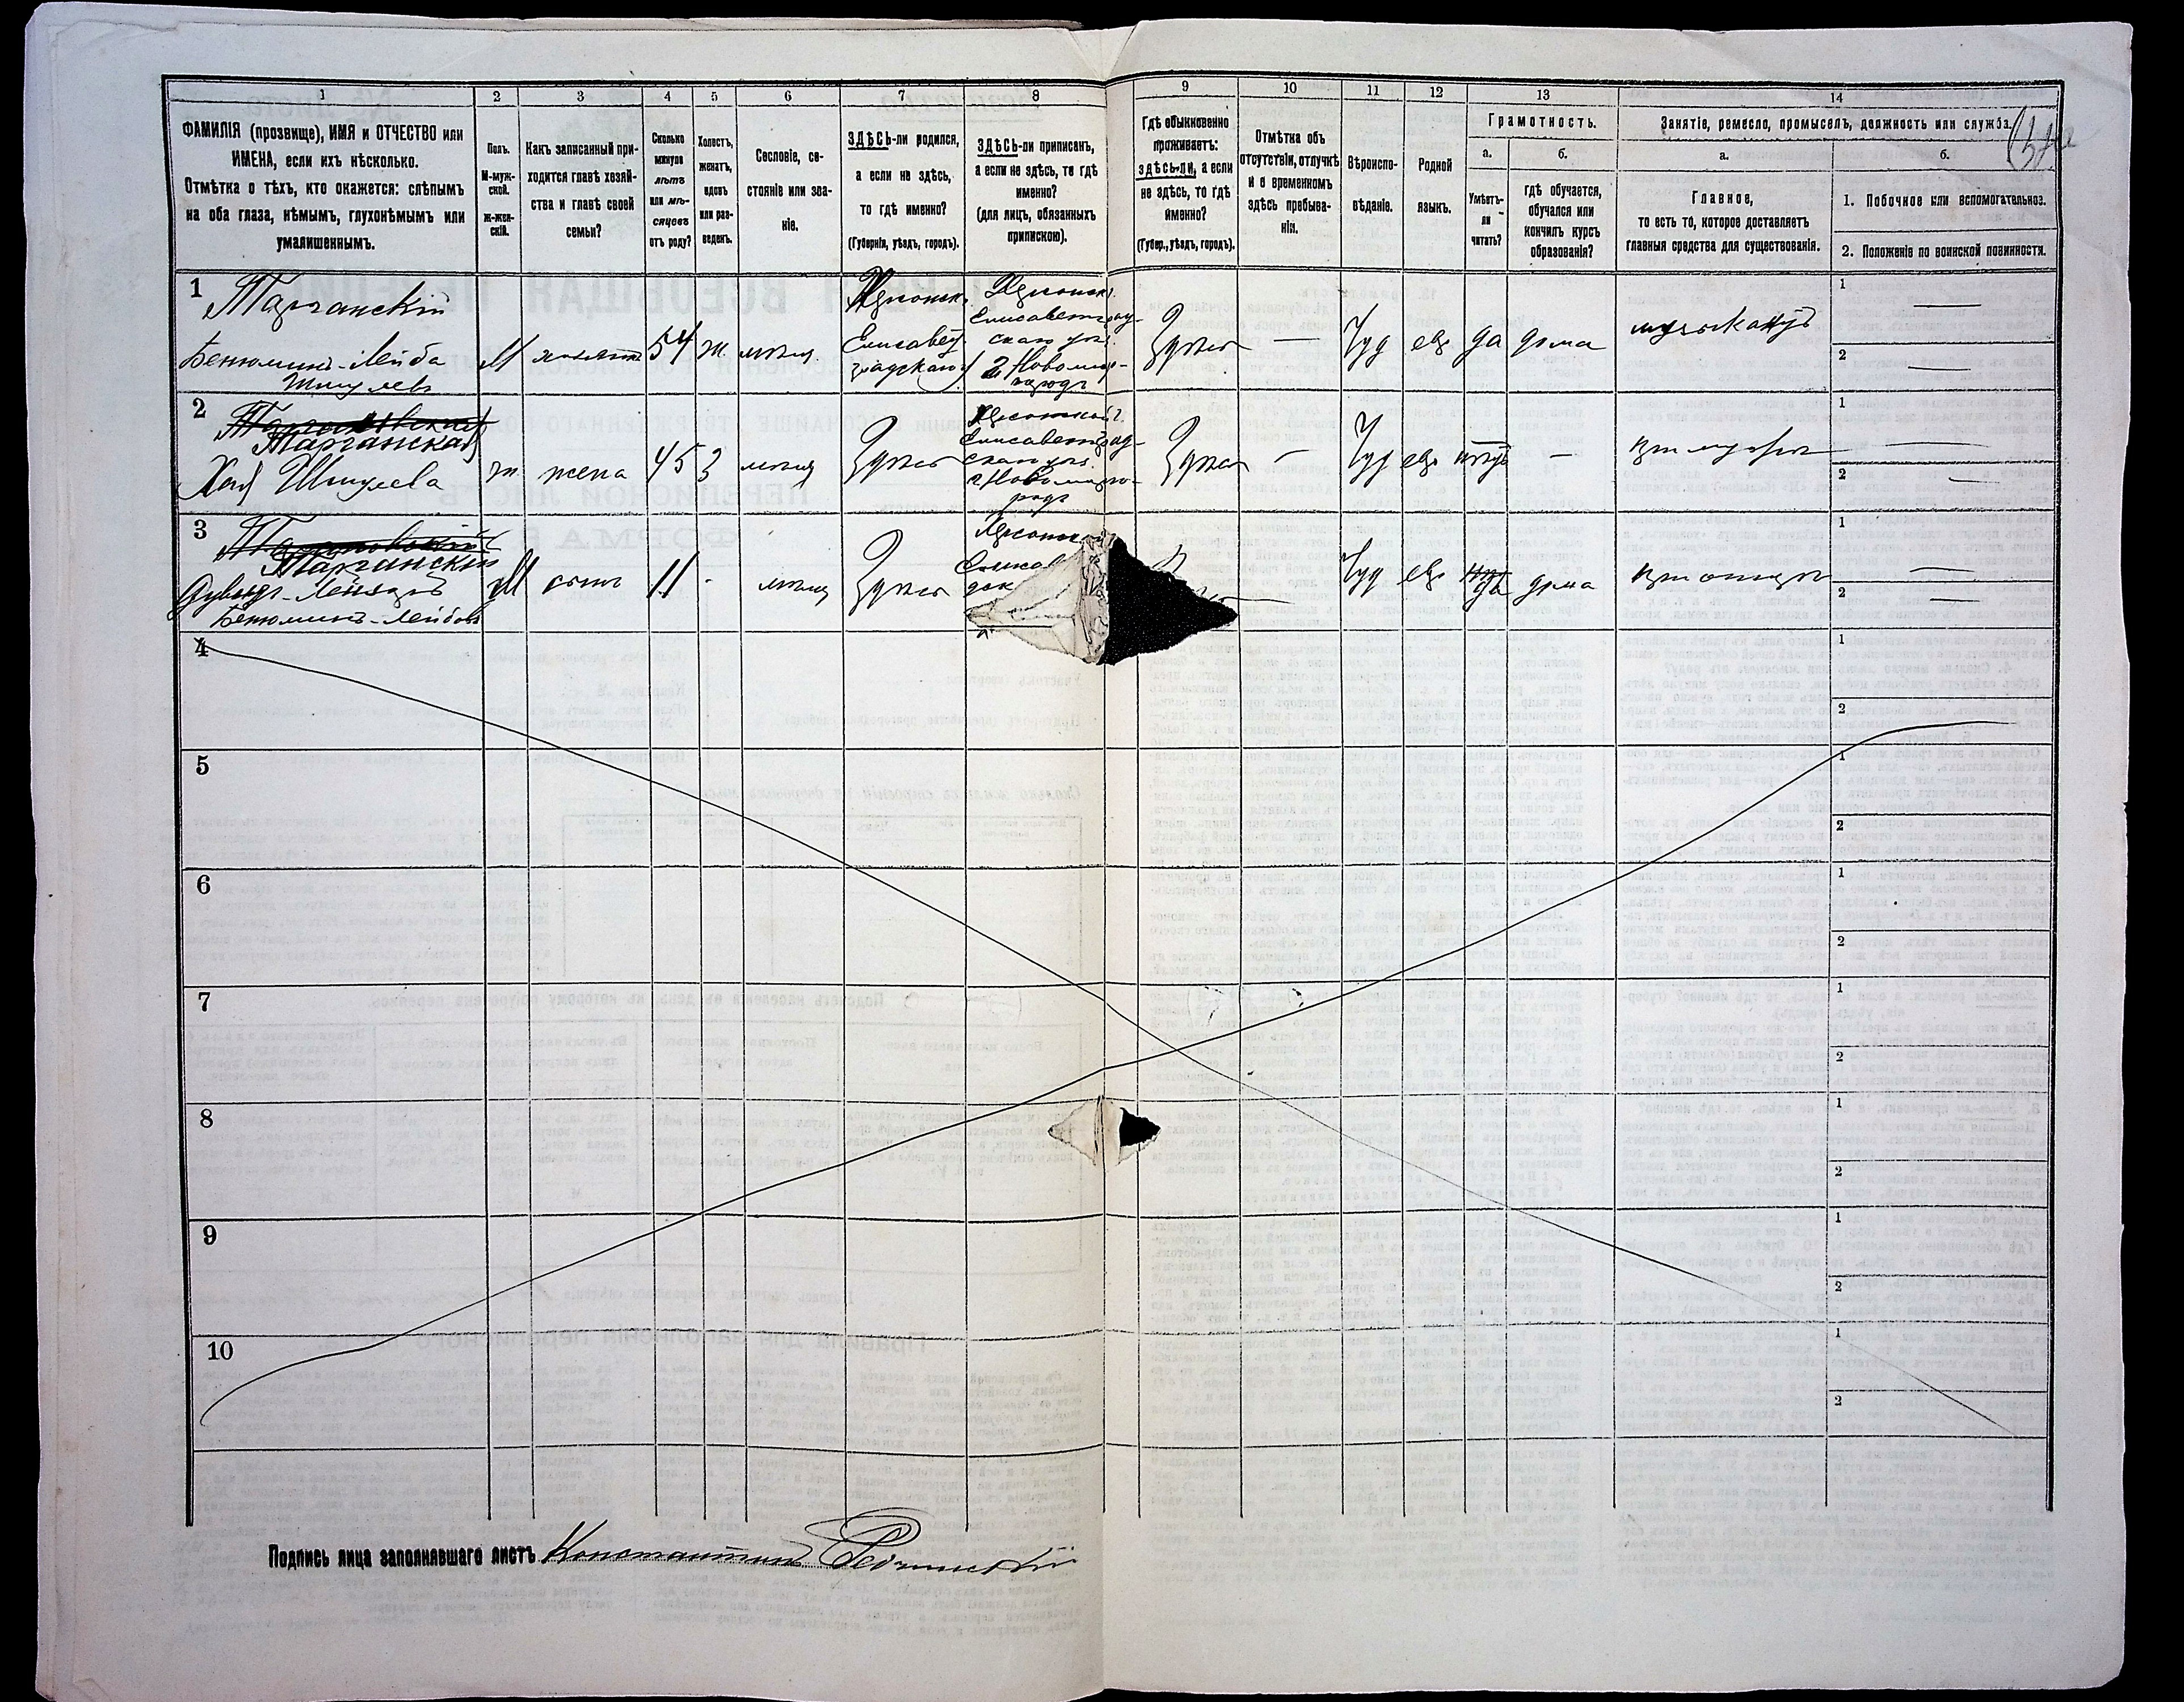 1 2 3 4 5 6 7 8 9 10 11 12 13 14
ФАМИЛІЯ (прозвище), ИМЯ и ОТЧЕСТВО или
ИМЕНА, если ихъ нѣсколько.
Отмѣтка о тѣхъ, кто окажется: слѣпымъ
на оба глаза, нѣмымъ, глухонѣмымъ или
умалишеннымъ.
Полъ.
М-муж-
ской.
Ж-жен-
скій.
Какъ записанный при-
ходится главѣ хозяй-
ства и главѣ своей
семьи?
Сколько
минуло
лѣтъ
или мѣ-
сяцевъ
отъ роду?
Холостъ,
женатъ,
вдовъ
или раз-
веденъ.
Сословіе, со-
стояніе или зва-
ніе.
ЗДѢСЬ-ли родился,
а если не здѣсь,
то гдѣ именно?
(Губернія, уѣздъ, городъ).
ЗДѢСЬ-ли приписанъ,
а если не здѣсь, то гдѣ
именно?
(для лицъ, обязанныхъ
припискою).
Гдѣ обыкновенно
проживаетъ:
здѣсь-ли, а если
не здѣсь, то гдѣ
именно?
(Губер., уѣздъ, городъ).
Отмѣтка объ
отсутствіи, отлучкѣ
и о временномъ
здѣсь пребыва-
ніи.
Вѣроиспо-
вѣданіе.
Родной
языкъ.
Грамотность.
а.
Умѣетъ-
ли
читать?
б.
гдѣ обучается,
обучался или
кончилъ курсъ
образованія?
Занятіе, ремесло, промыселъ, должность или служба.
а.
Главное,
то есть то, которое доставляетъ
главныя средства для существованія.
б.
1. Побочное или вспомогательное.
2. Положеніе по воинской повинности.
1
Тарганскій
Бенюминъ-Лейба
Шмулевъ
М
хозяинъ
54
ж.
мѣщ.
Херсонск.
Елисавет-
градскаго
Херсонск.
Елисаветград-
скаго уѣз.
г. Новомир-
городъ
Здѣсь
—
Іуд
евр
да
дома
музыкантъ
1 —
2 —
2
Тарганская
Хая Шмулева
ж
жена
45
З
мѣщ
Здѣсь
Херсонской г.
Елисаветград-
скаго уѣз.
г. Новомирго-
родъ
Здѣсь
—
Іуд
евр
нѣтъ
—
при мужѣ
1 —
2 —
3
Тарганскій
Дувидъ-Лейзеръ
Бенюминъ-Лейбовъ
М
сынъ
11
-
мѣщ
Здѣсь
Херсонск
Елисав
—
Іуд
евр
да
дома
при отцѣ
1 —
2 —
4
1
2
5
1
2
6
1
2
7
1
2
8
1
2
9
1
2
10
1
2
Подпись лица заполнявшаго листъ Константинъ